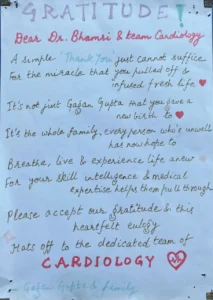 GRATITUDE!
Dear Dr. Bhamri & team Cardiology
A simple 'Thank You' just cannot suffice
For the miracle that you pulled off &
infused fresh life
It's not just Gagan Gupta that you gave a
new birth to
It's the whole family, every person who's unwell
has now hope to
Breathe, live & experience life anew
For your skill intelligence & medical
expertise helps them pull through
Please accept our gratitude & this
heartfelt eulogy
Hats off to the dedicated team of
CARDIOLOGY
Gagan Gupta & family